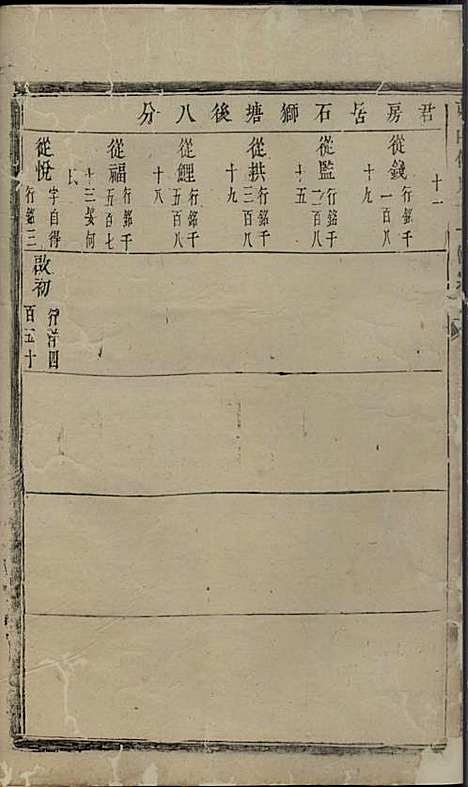 君房岳石獅塘後八分
十一
從錢 行銘千一百八十九
從監 行銘千一百八十五
從拱 行銘千三百八十九
從鯉 行銘千五百八十八
從福 行銘千五百七十三娶何氏
從悅 字自得行銘三
啟初 行洋四百五十